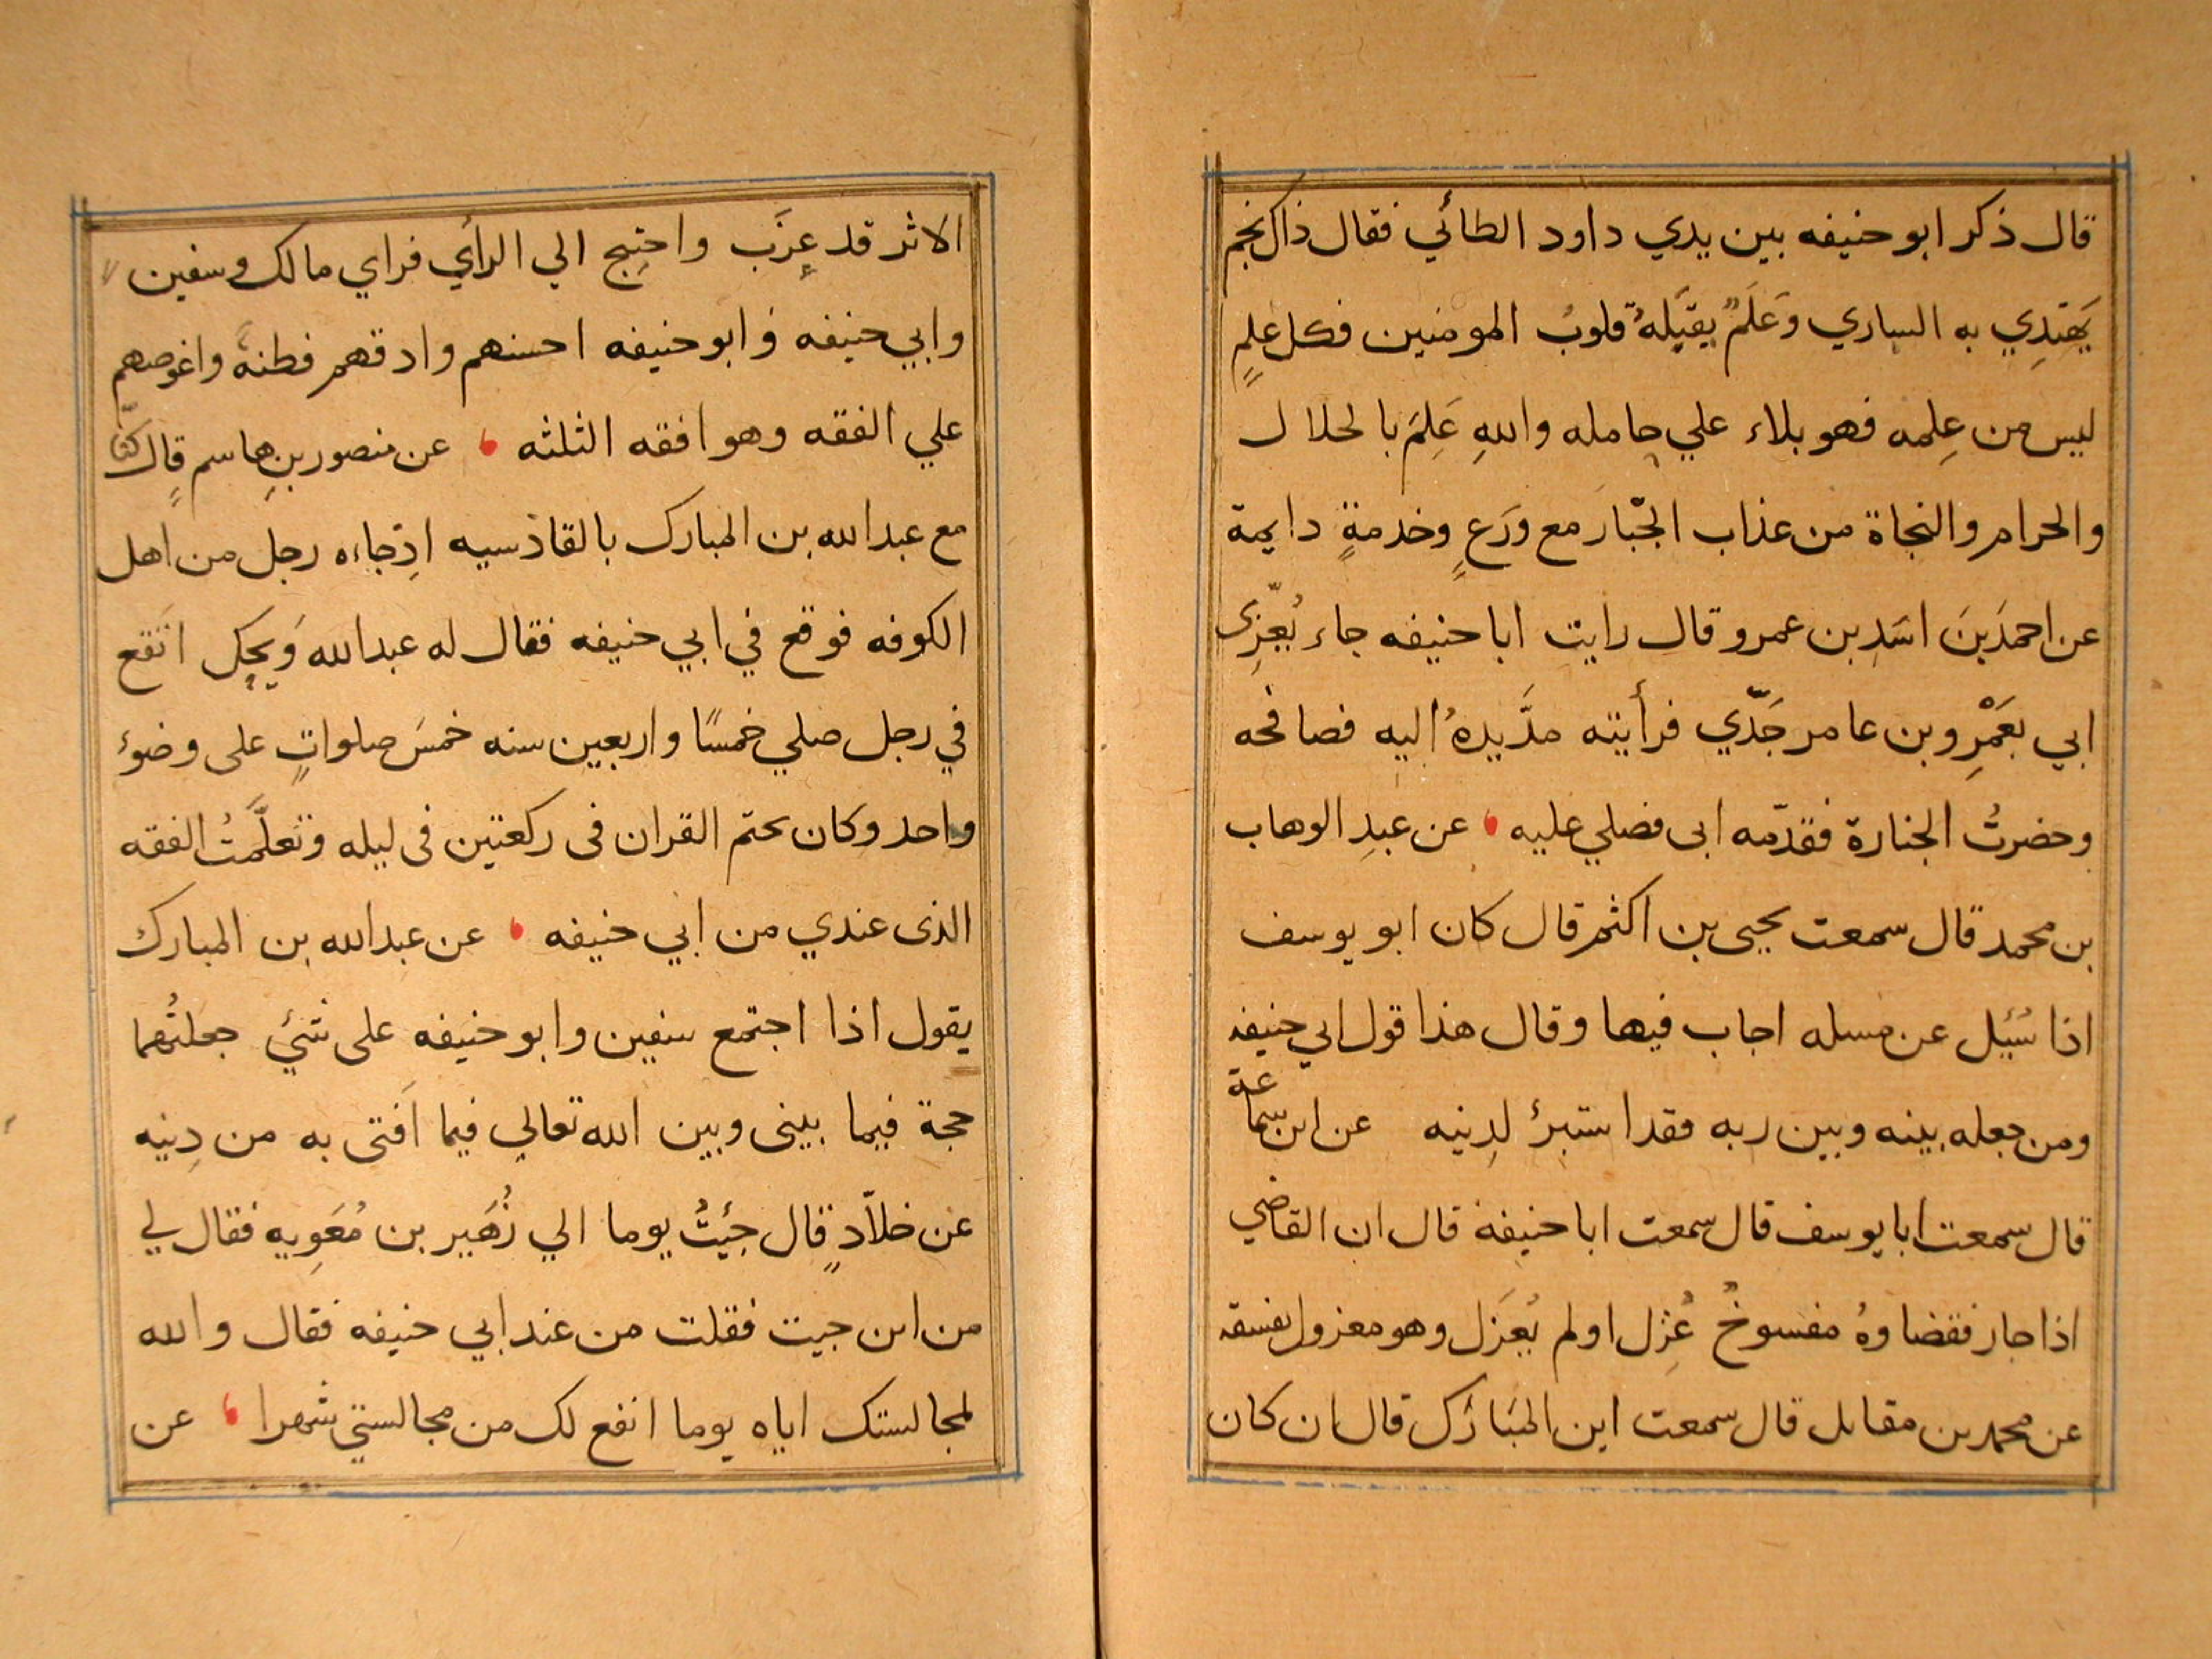 قال ذكر ابو حنيفه بين يدي داود الطائي فقال ذاك نجم
يَهتِدي به الساري وَعَلَمٌ يقبَلهُ قلوبُ المومنين فكل عِلمٍ
ليس من عِلمه فهو بلاء علي حامله واللهِ عَلِمَ بالحلال
والحرام والنجاة من عذاب الجّبار مع وَرَعٍ وخدمةٍ دايمة
عن احمدَ بنَ اسَدِ بن عمرو قال رايت ابا حنيفه جاء يُعّزِى
ابي بعَمْرِو بن عامر جَدّي فرأيته مدَّ يدهُ اليه فصافحه
وحضرتُ الجنازة فقدّمه ابى فصلي عليه ، عن عبدِ الوهاب
بن محمد قال سمعت يحيى بن اكثم قال كان ابو يوسف
اذا سُئِل عن مسله اجاب فيها وقال هذا قول ابي حنيفه
ومن جعله بينه وبين ربه فقد استبرئ لدِينه عن ابن سماعة
قال سمعت ابا يوسف قال سمعت ابا حنيفة قال ان القاضي
اذا جار فقضاوهُ مفسوخٌ عُزِل او لم يُعزَل وهو معزول بفسقه
عن محمد بن مقاتل قال سمعت ابن المبَارَك قال ان كان
الاثر قد عِزَب واحتِيج الي الرأي فراي مالك وسفين
وابي حنيفه وَابو حنيفه احسنهم وادقهم فطنةً واغوصهم
علي الفقه وهو افقه الثلثه ، عن منصور بنِ هاسم قالٍ كنّا
مع عبد الله بن المبارك بالقادسيه اذِجاءه رجل من اهل
الكوفه فوقع في ابي حنيفه فقال له عبد الله وَيحِك اتَقع
في رجل صلي خمسًا واربعين سنه خمسَ صلواتٍ على وضوء
واحد وكان يختم القران فى ركعتين فى ليله وَتعلَّمتُ الفقه
الذى عندي من ابي حنيفه ، عن عبد الله بن المبارك
يقول اذا اجتمع سفين وابو حنيفه على شيٍ جعلتُهما
حجة فيما بينى وبين الله تعالي فيما اَفتى به من دِينه
عن خلاّدٍ قال جئِتُ يوما الي زُهَير بن مُعَوِيه فقال لي
من اىن جيت فقلت من عند ابي حنيفه فقال والله
لمجالستك اياه يوما انفع لك من مجالستي شهرا ، عن